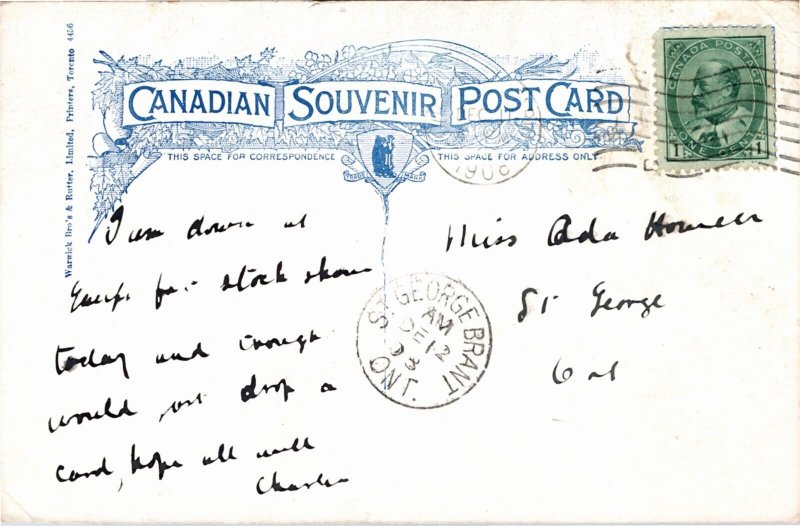 Warwick Bro's & Rutter, Limited, Printers, Toronto 4456
CANADIAN SOUVENIR POST CARD
THIS SPACE FOR CORRESPONDENCE
THIS SPACE FOR ADDRESS ONLY.
TRADE MARK
1908
CANADA POSTAGE
ONE CENT
1 1
I am down at
for stock show
today and
would just drop a
card, hope all well
Charlie
ST. GEORGE BRANT
AM
DE 12
08
ONT.
Miss Ada
St George
Ont